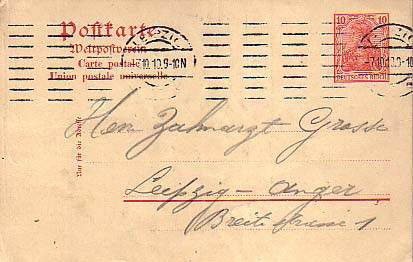 Postkarte
Weltpostverein
Carte postale
Union postale universelle
LEIPZIG
10.10.9-10N
10
10
DEUTSCHES REICH
-7.10.10.9-10N
Nur für die Adresse
Herrn Zahnarzt Grosse
Leipzig-Anger
Breitestrasse 1